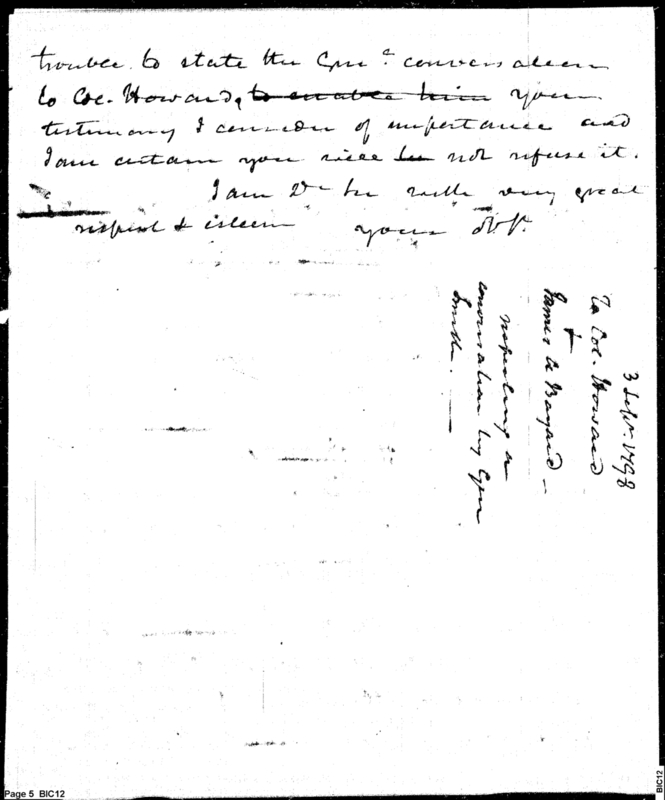 trouble to state the Gen.ˡ conversation
to Col. Howard, to enable him your
testimony I consider of importance and
I am certain you will be not refuse it.
I am Dr Sir with very great
respect & esteem yours Obt.
3 Sept. 1798
To Col. Howard
&
James A Bayard –
respecting a
conversation by Gen
Smith. —
Page 5 BIC12
BIC12